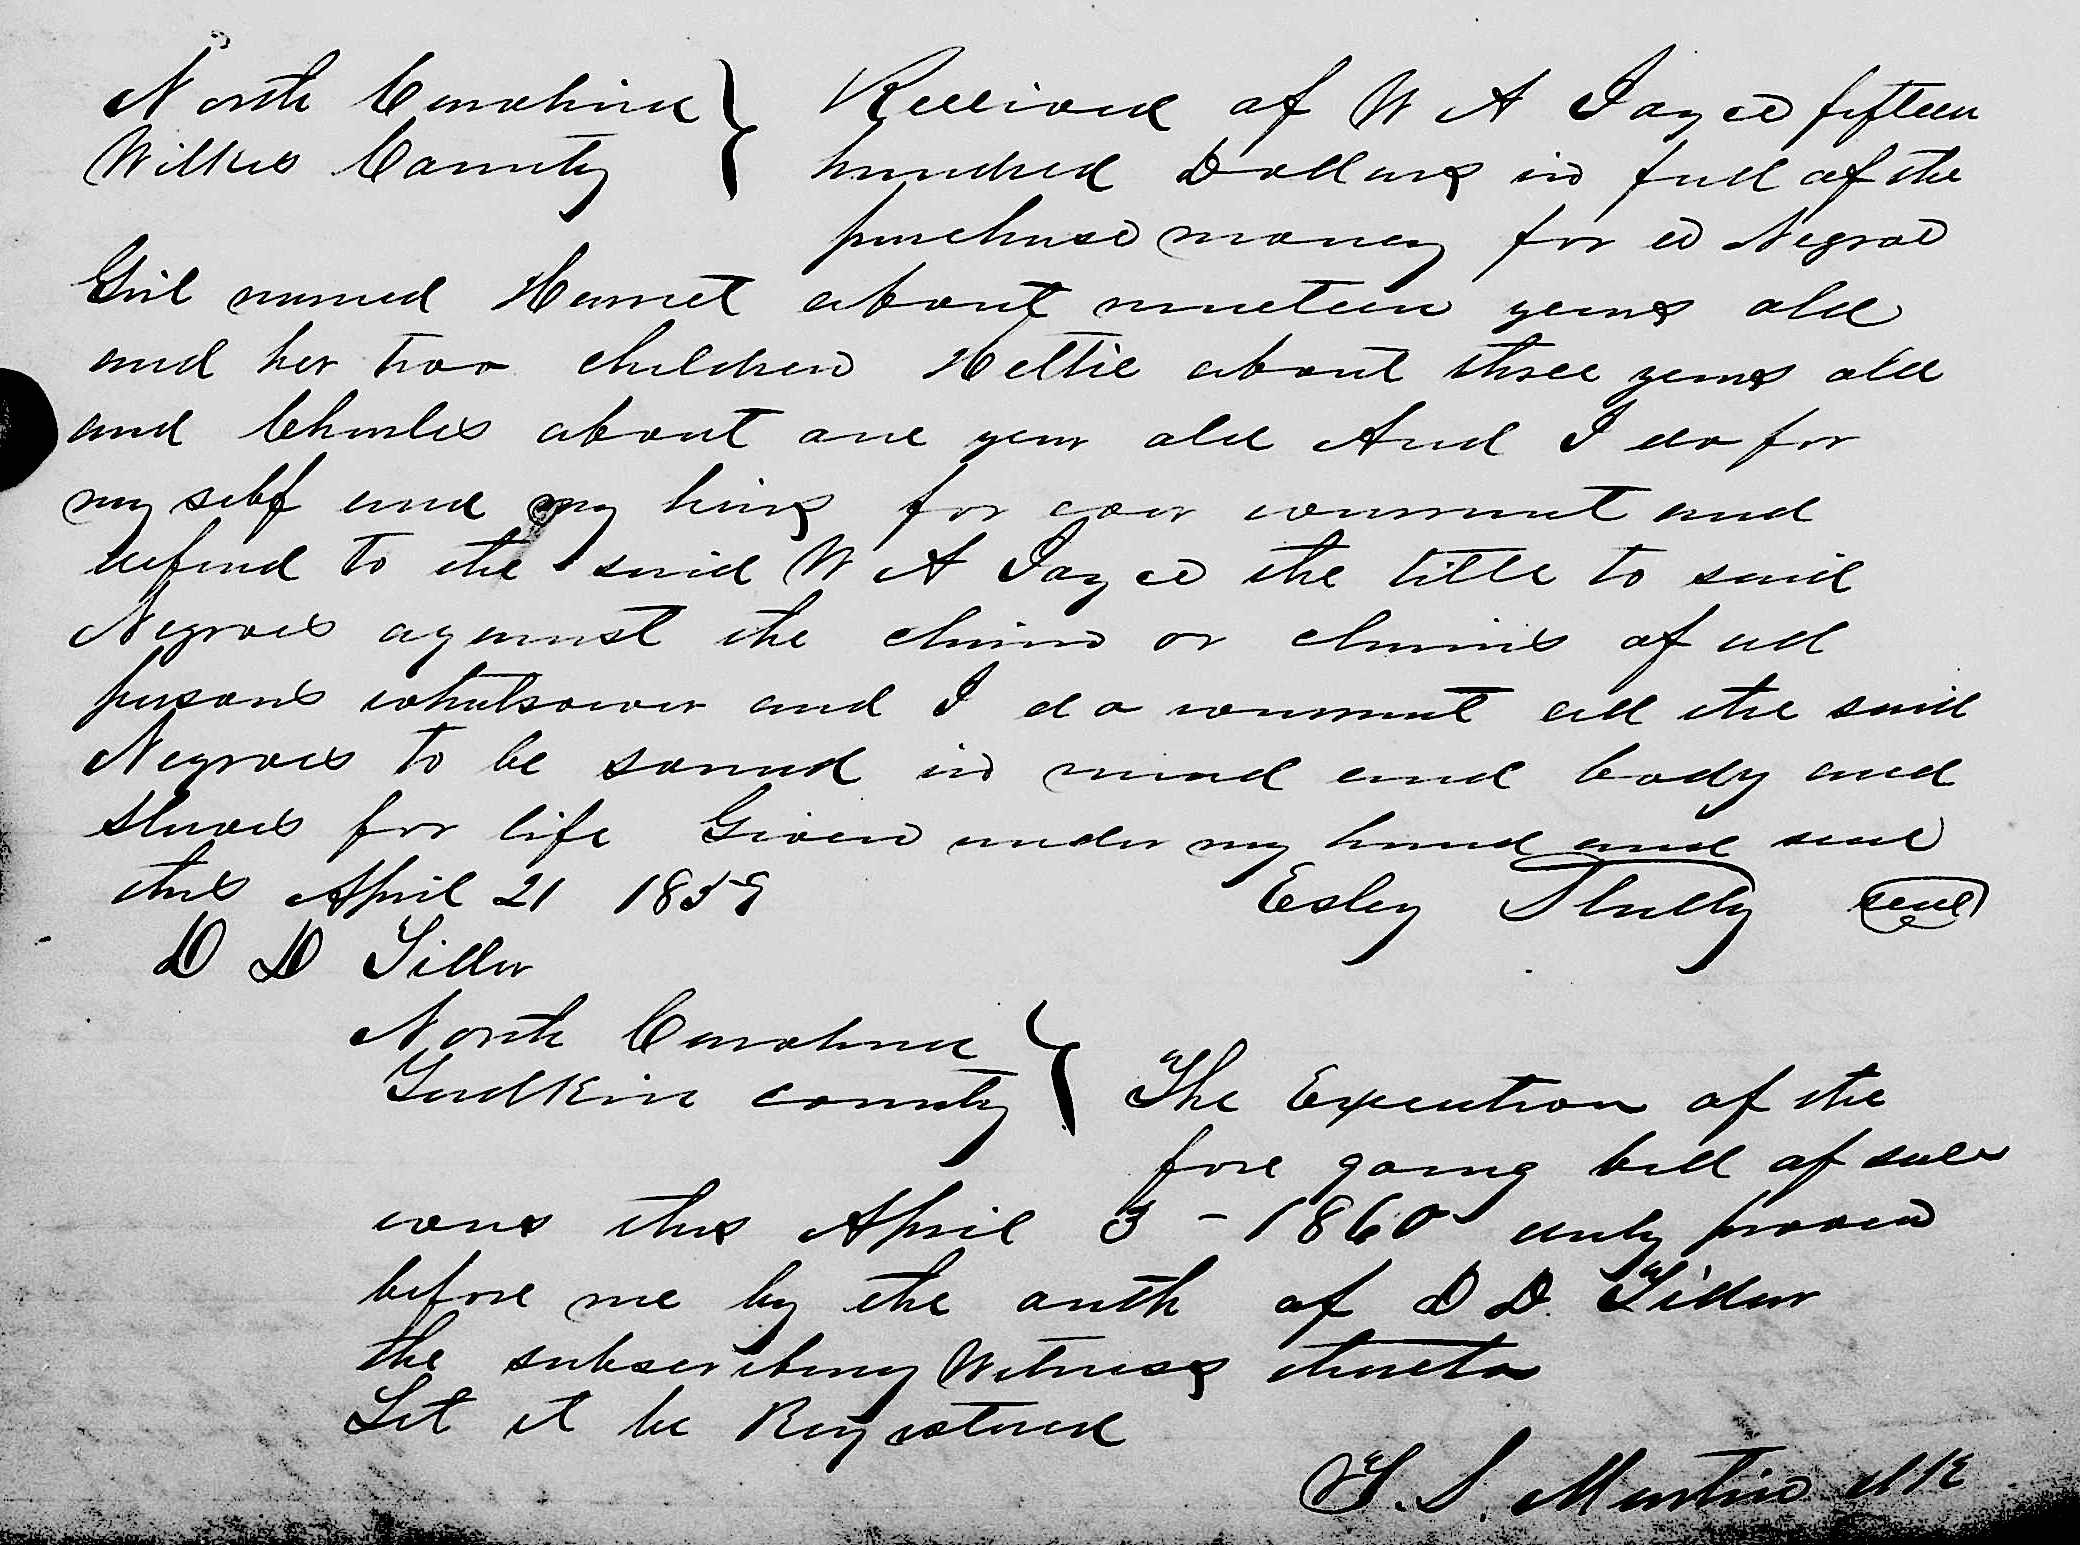 North Carolina } Received of W A Joyce fifteen
Wilkes County } hundred Dollars in full of the
purchase money for a Negroe
Girl named Harriet about nineteen years old
and her two children Hettie about three years old
and Charles about one year old And I do for
my self and my heirs for ever warrant and
defend to the said W A Joyce the title to said
Negroes against the claim or claims of all
persons whatsoever and I do warrant all the said
Negroes to be sound in mind and body and
Slaves for life Given under my hand and seal
this April 21 1859 Esley Staley seal
D D Tiller
North Carolina }
Yadkin county } The Execution of the
fore going bill of sale
was this April 3 - 1860 duly proven
before me by the outh of D D. Tiller
the subscribing Witness thereto
Let it be Registered
T. S. Martin